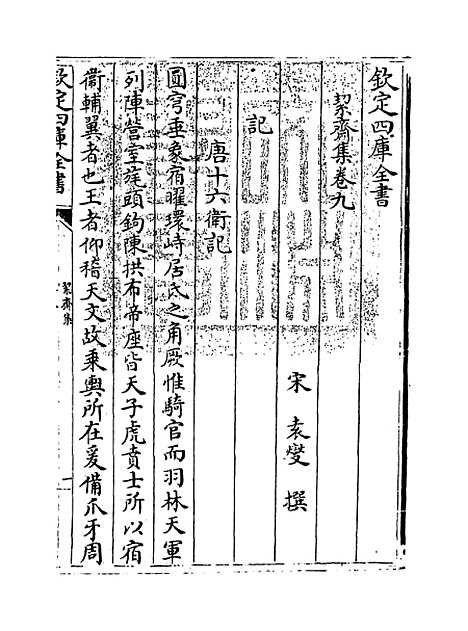 欽定四庫全書
絜齋集卷九
宋 袁燮 撰
記
唐十六衛記
圓穹垂象宿曜環峙居氐之角厥惟騎官而羽林天軍
列陣營室旄頭鉤陳拱布帝座皆天子虎賁士所以宿
衛輔翼者也王者仰稽天文故乘輿所在爰備爪牙周
欽定四庫全書
絜齋集
一